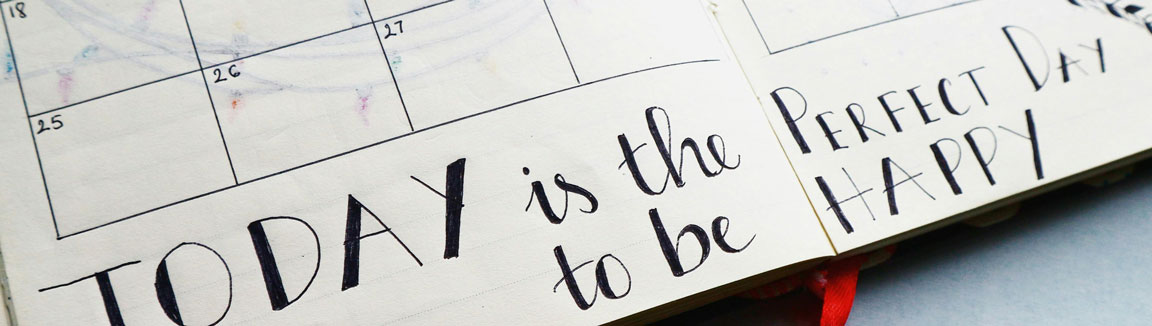 18
27
26
25
TODAY is the PERFECT DAY
to be HAPPY